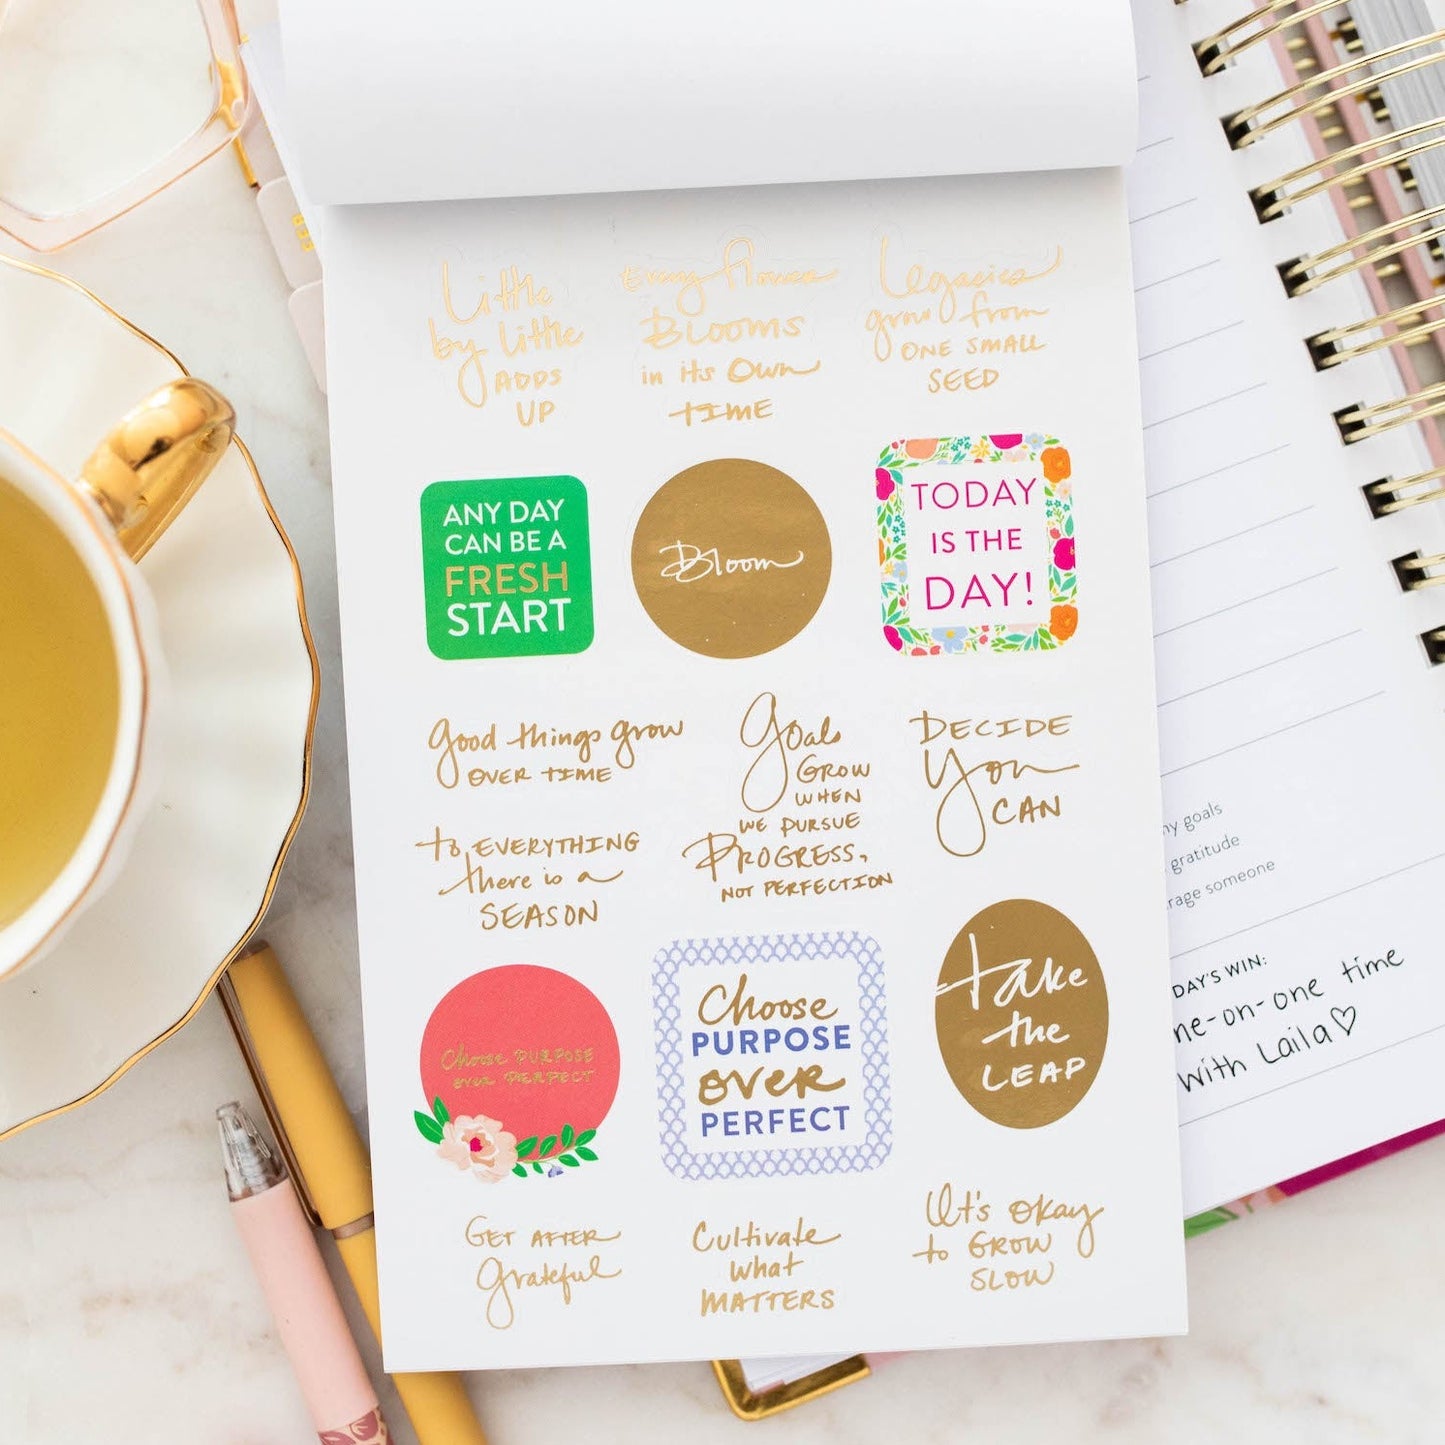 Little
by Little
ADDS
UP
Every flower
BLOOMS
in its Own
TIME
Legacies
grow from
ONE SMALL
SEED
ANY DAY
CAN BE A
FRESH
START
Bloom
TODAY
IS THE
DAY!
Good things grow
OVER TIME
Goals
GROW
WHEN
WE PURSUE
PROGRESS,
NOT PERFECTION
DECIDE
You
CAN
to EVERYTHING
there is a
SEASON
Choose PURPOSE
over PERFECT
Choose
PURPOSE
over
PERFECT
take
the
LEAP
GET AFTER
grateful
Cultivate
what
MATTERS
It's okay
to GROW
SLOW
goals
gratitude
someone
DAY'S WIN:
ne-on-one time
with Laila♡